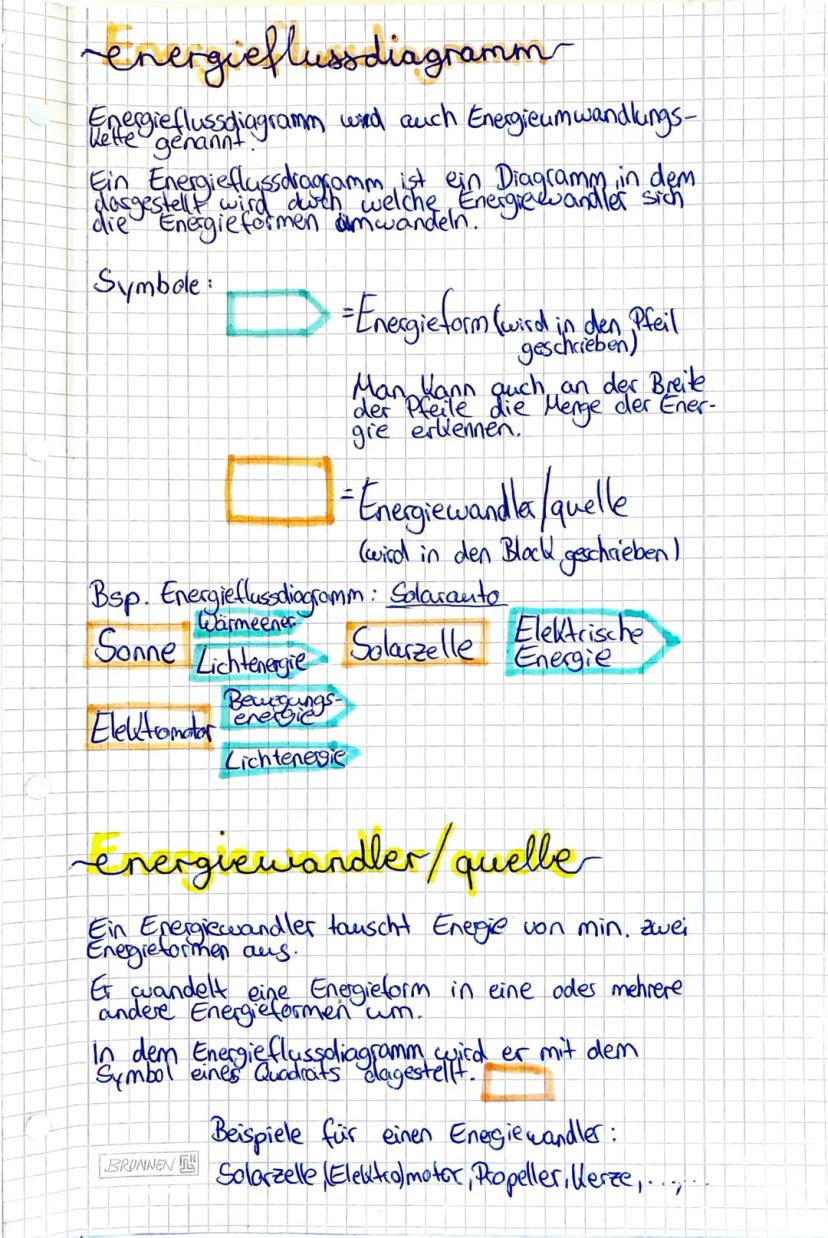 ~Energieflussdiagramm~
Energieflussdiagramm wird auch Energieumwandlungs-
kette genannt.
Ein Energieflussdiagramm ist ein Diagramm, in dem
dargestellt wird durch welche Energiewandler sich
die Energieformen umwandeln.
Symbole:
= Energieform (wird in den Pfeil
geschrieben)
Man kann auch an der Breite
der Pfeile die Menge der Ener-
gie erkennen.
= Energiewandler/quelle
(wird in den Block geschrieben)
Bsp. Energieflussdiagramm: Solarauto
Sonne
Wärmeener.
Lichtenergie
Solarzelle
Elektrische
Energie
Elektromotor
Bewegungs-
energie
Lichtenergie
~Energiewandler/quelle~
Ein Energiewandler tauscht Energie von min. zwei
Energieformen aus.
Er wandelt eine Energieform in eine oder mehrere
andere Energieformen um.
In dem Energieflussdiagramm wird er mit dem
Symbol eines Quadrats dagestellt.
Beispiele für einen Energiewandler:
BRUNNEN
Solarzelle, (Elektro)motor, Propeller, Kerze, ..., ..